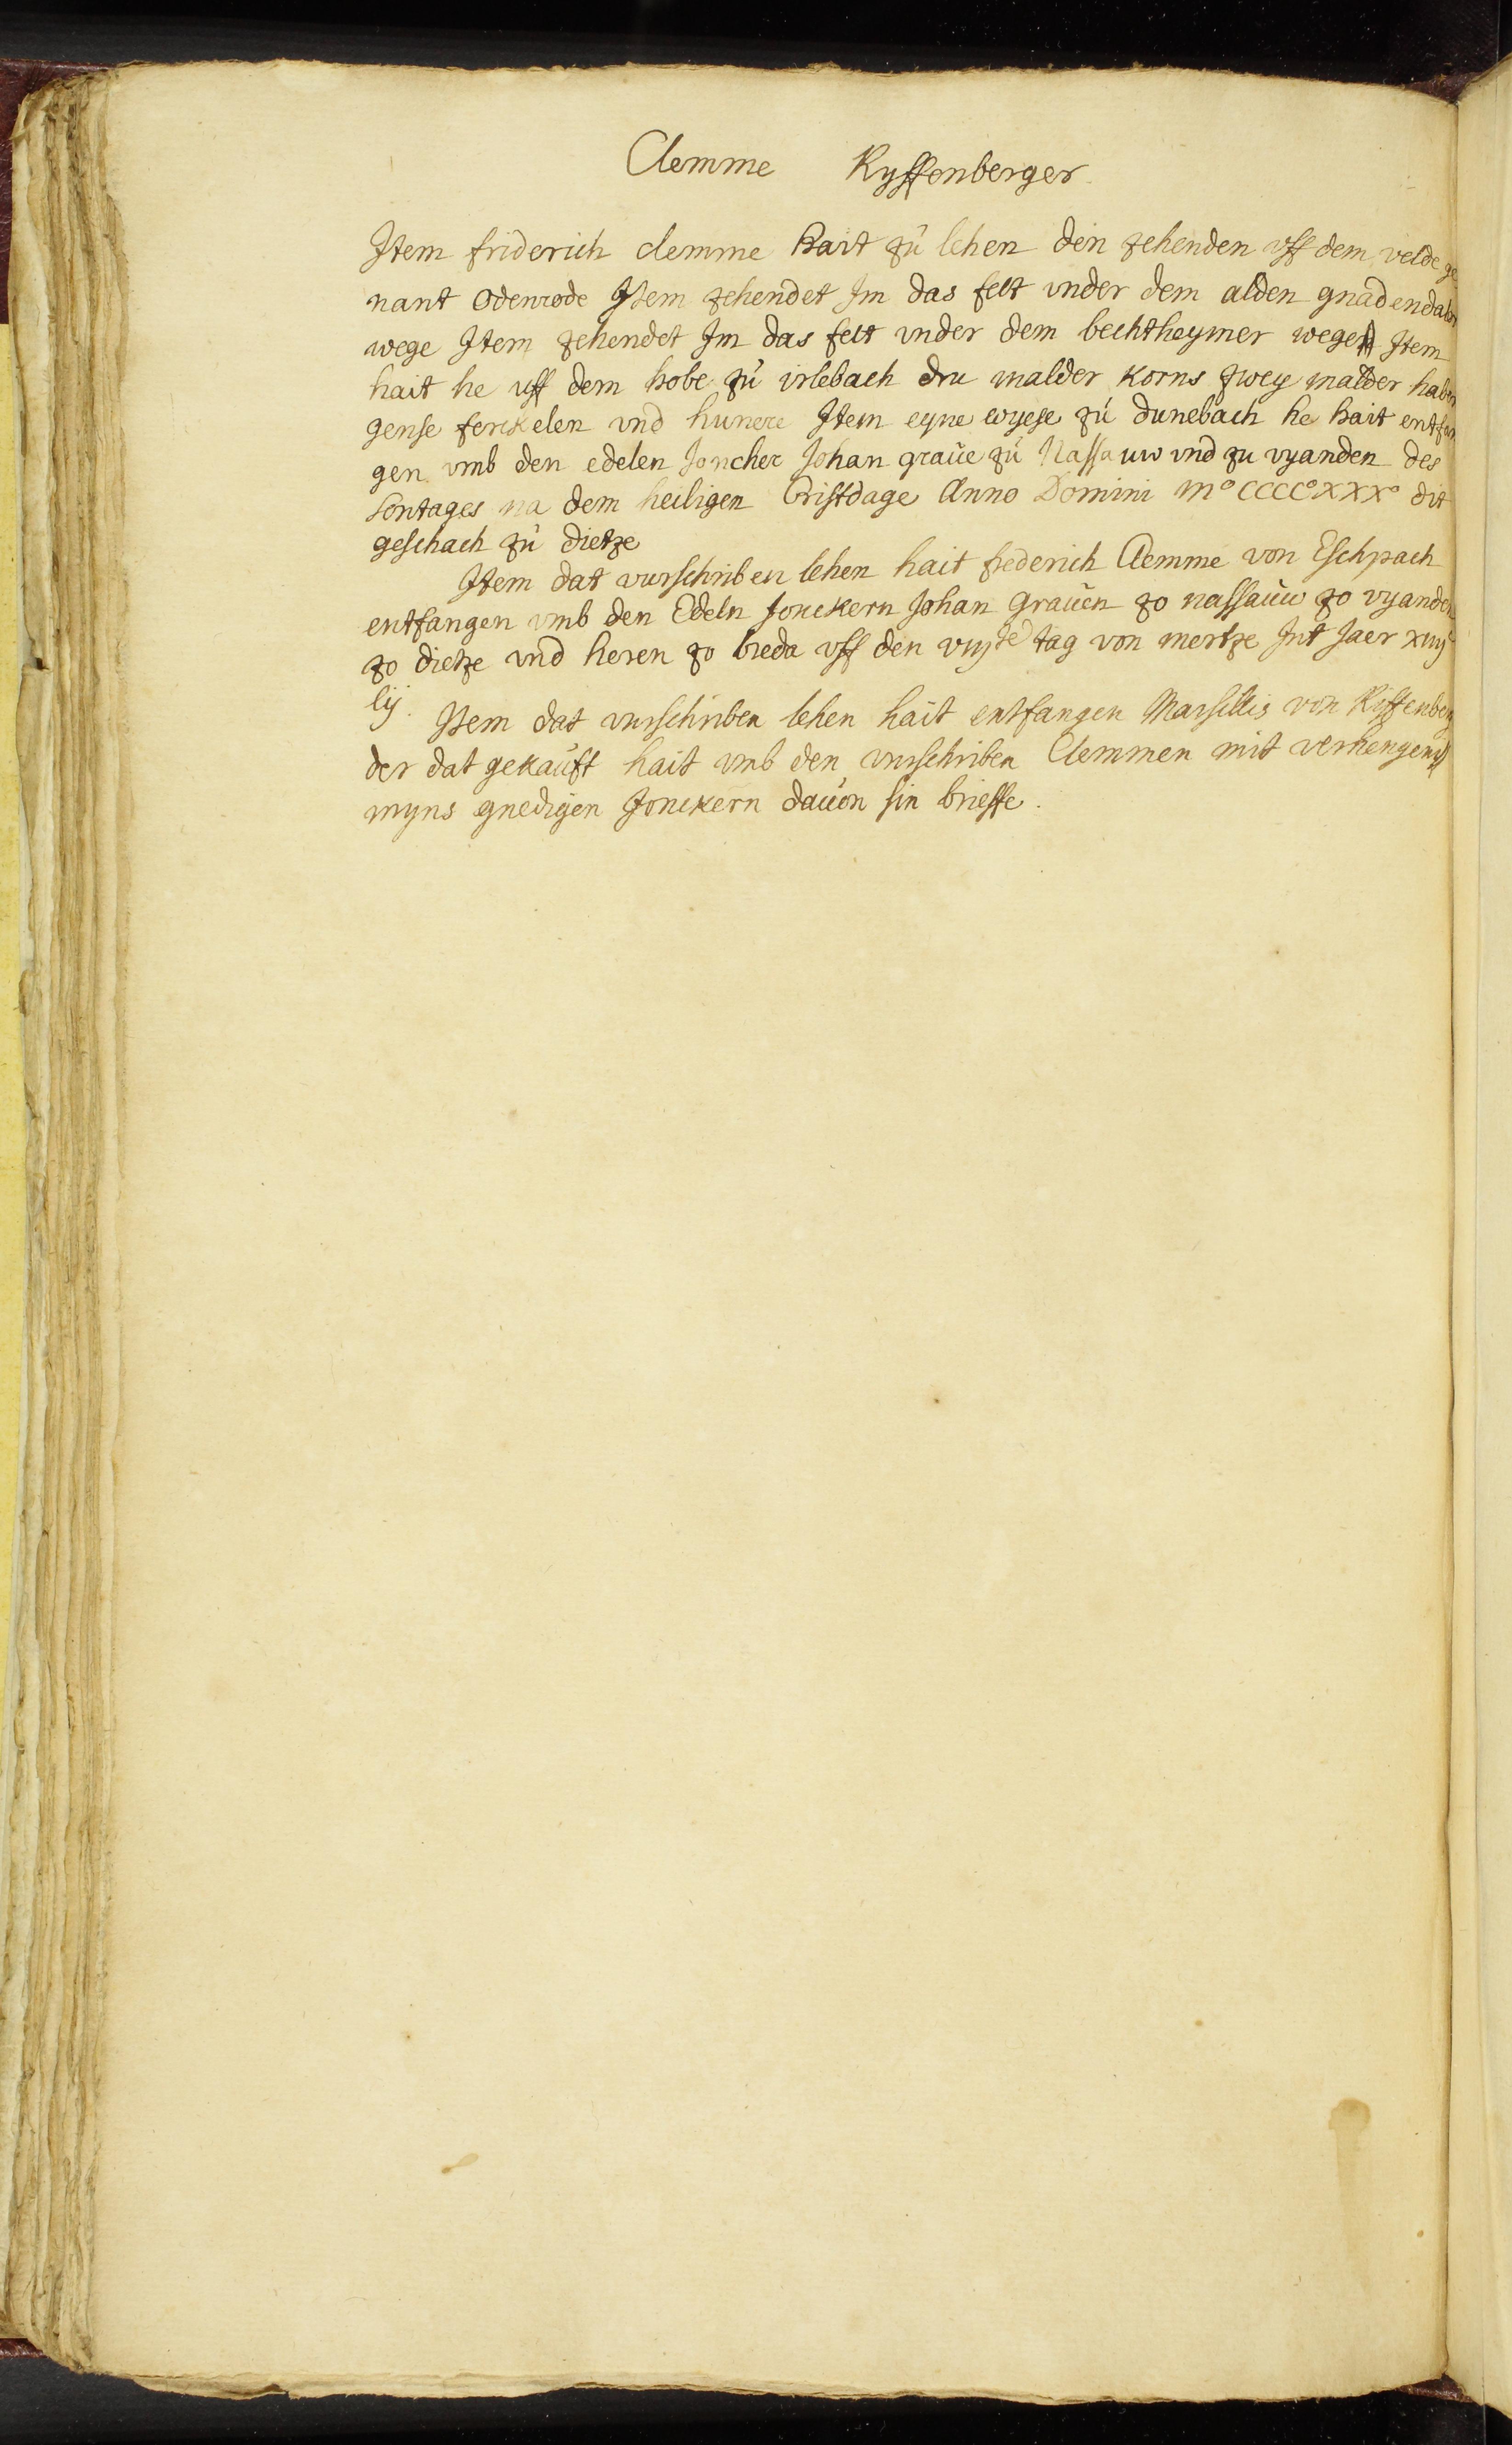 Clemme Ryffenberger
Jtem friderich clemme hait zů lehen den zehenden vff dem velde ge
nant odenrode Jtem zehendet Jm das felt vnder dem alden gnadendaler
wege Jtem zehendet Jm das felt vnder dem bechtheymer wege Jtem
hait he vff dem hobe zů irlebach dru malder korns zwey malder habern
gense ferckelen vnd hunere Jtem eyne wyese zů dunebach he hait entfan
gen vmb den edelen Joncher Johan graůe zů Nassauw vnd zu vyanden des
Sontages na dem heiligen Cristdage Anno Domini mº ccccº xxxº dit
geschach zů dietze
Jtem dat vurschriben lehen hait frederich Clemme von Eschpach
entfangen vmb den Edeln Jonckern Johan Graůen zo nassaůw zo vyanden
zo dietze vnd heren zo breda vff den tag von mertze Jnt Jaer xiiijc
lij.
Jtem dat vurschriben lehen hait entfangen Marsilis von Riffenberg
der dat gekaůft hait vmb den vurschriben Clemmen mit verhengeniß
myns gnedigen Jonckern daůon sin brieffe.